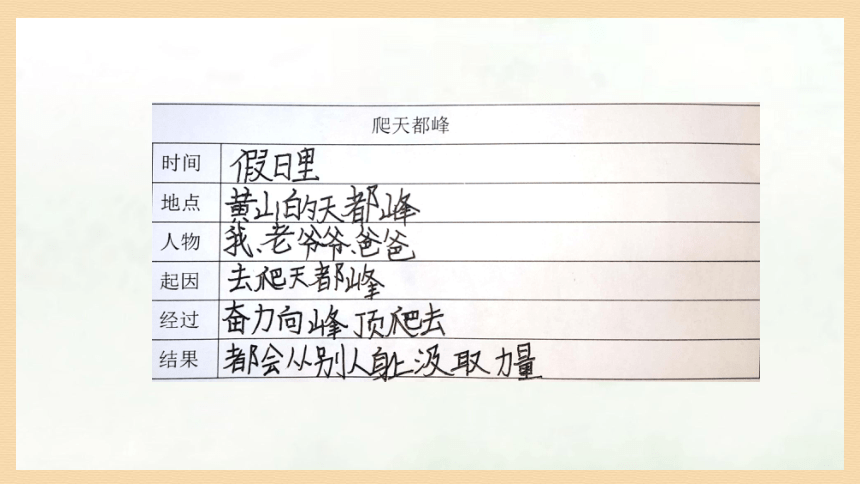 爬天都峰
时间 假日里
地点 黄山的天都峰
人物 我、老爷爷、爸爸
起因 去爬天都峰
经过 奋力向峰顶爬去
结果 都会从别人身上汲取力量